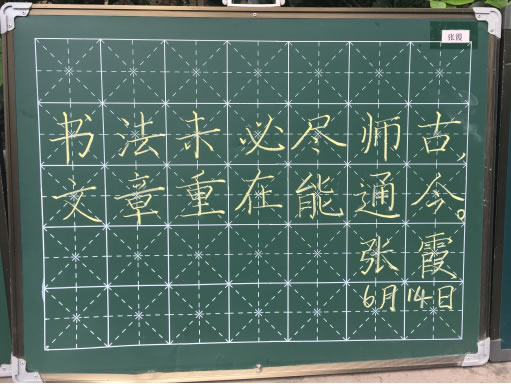 张霞
书法未必尽师古,
文章重在能通今。
张霞
6月14日